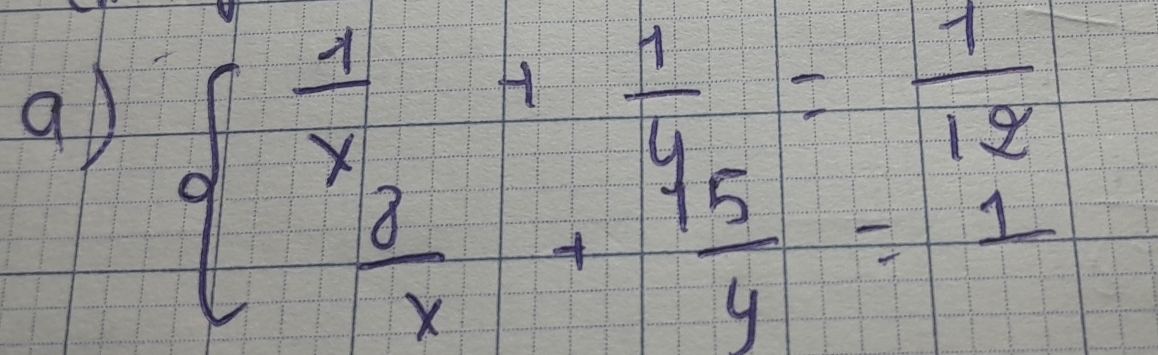 a) { 1/x + 1/y = 1/12
8/x + 15/y = 1